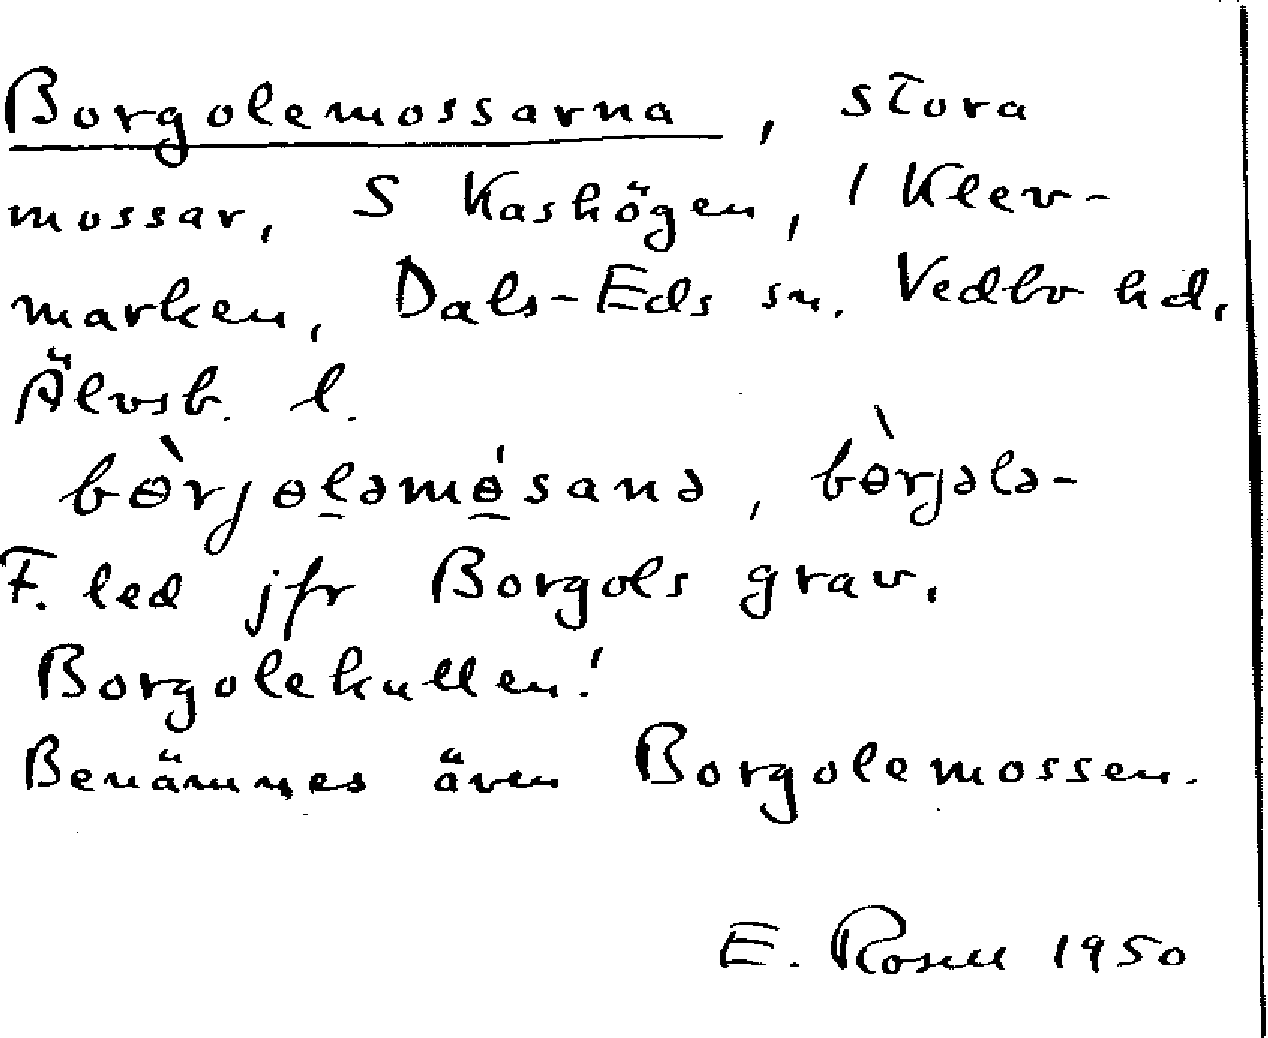 Borgolemossarna, stora
mossar, S Kashögen, i Klev-
marken, Dals-Eds sn. Vedbo hd,
Älvsb. l.
bɵ̀rjɵlǝmɵ́sanǝ, bɵ̀rjǝlǝ-
F. led jfr Borgols grav,
Borgolekullen!
Benämnes även Borgolemossen.
E. Rosell 1950